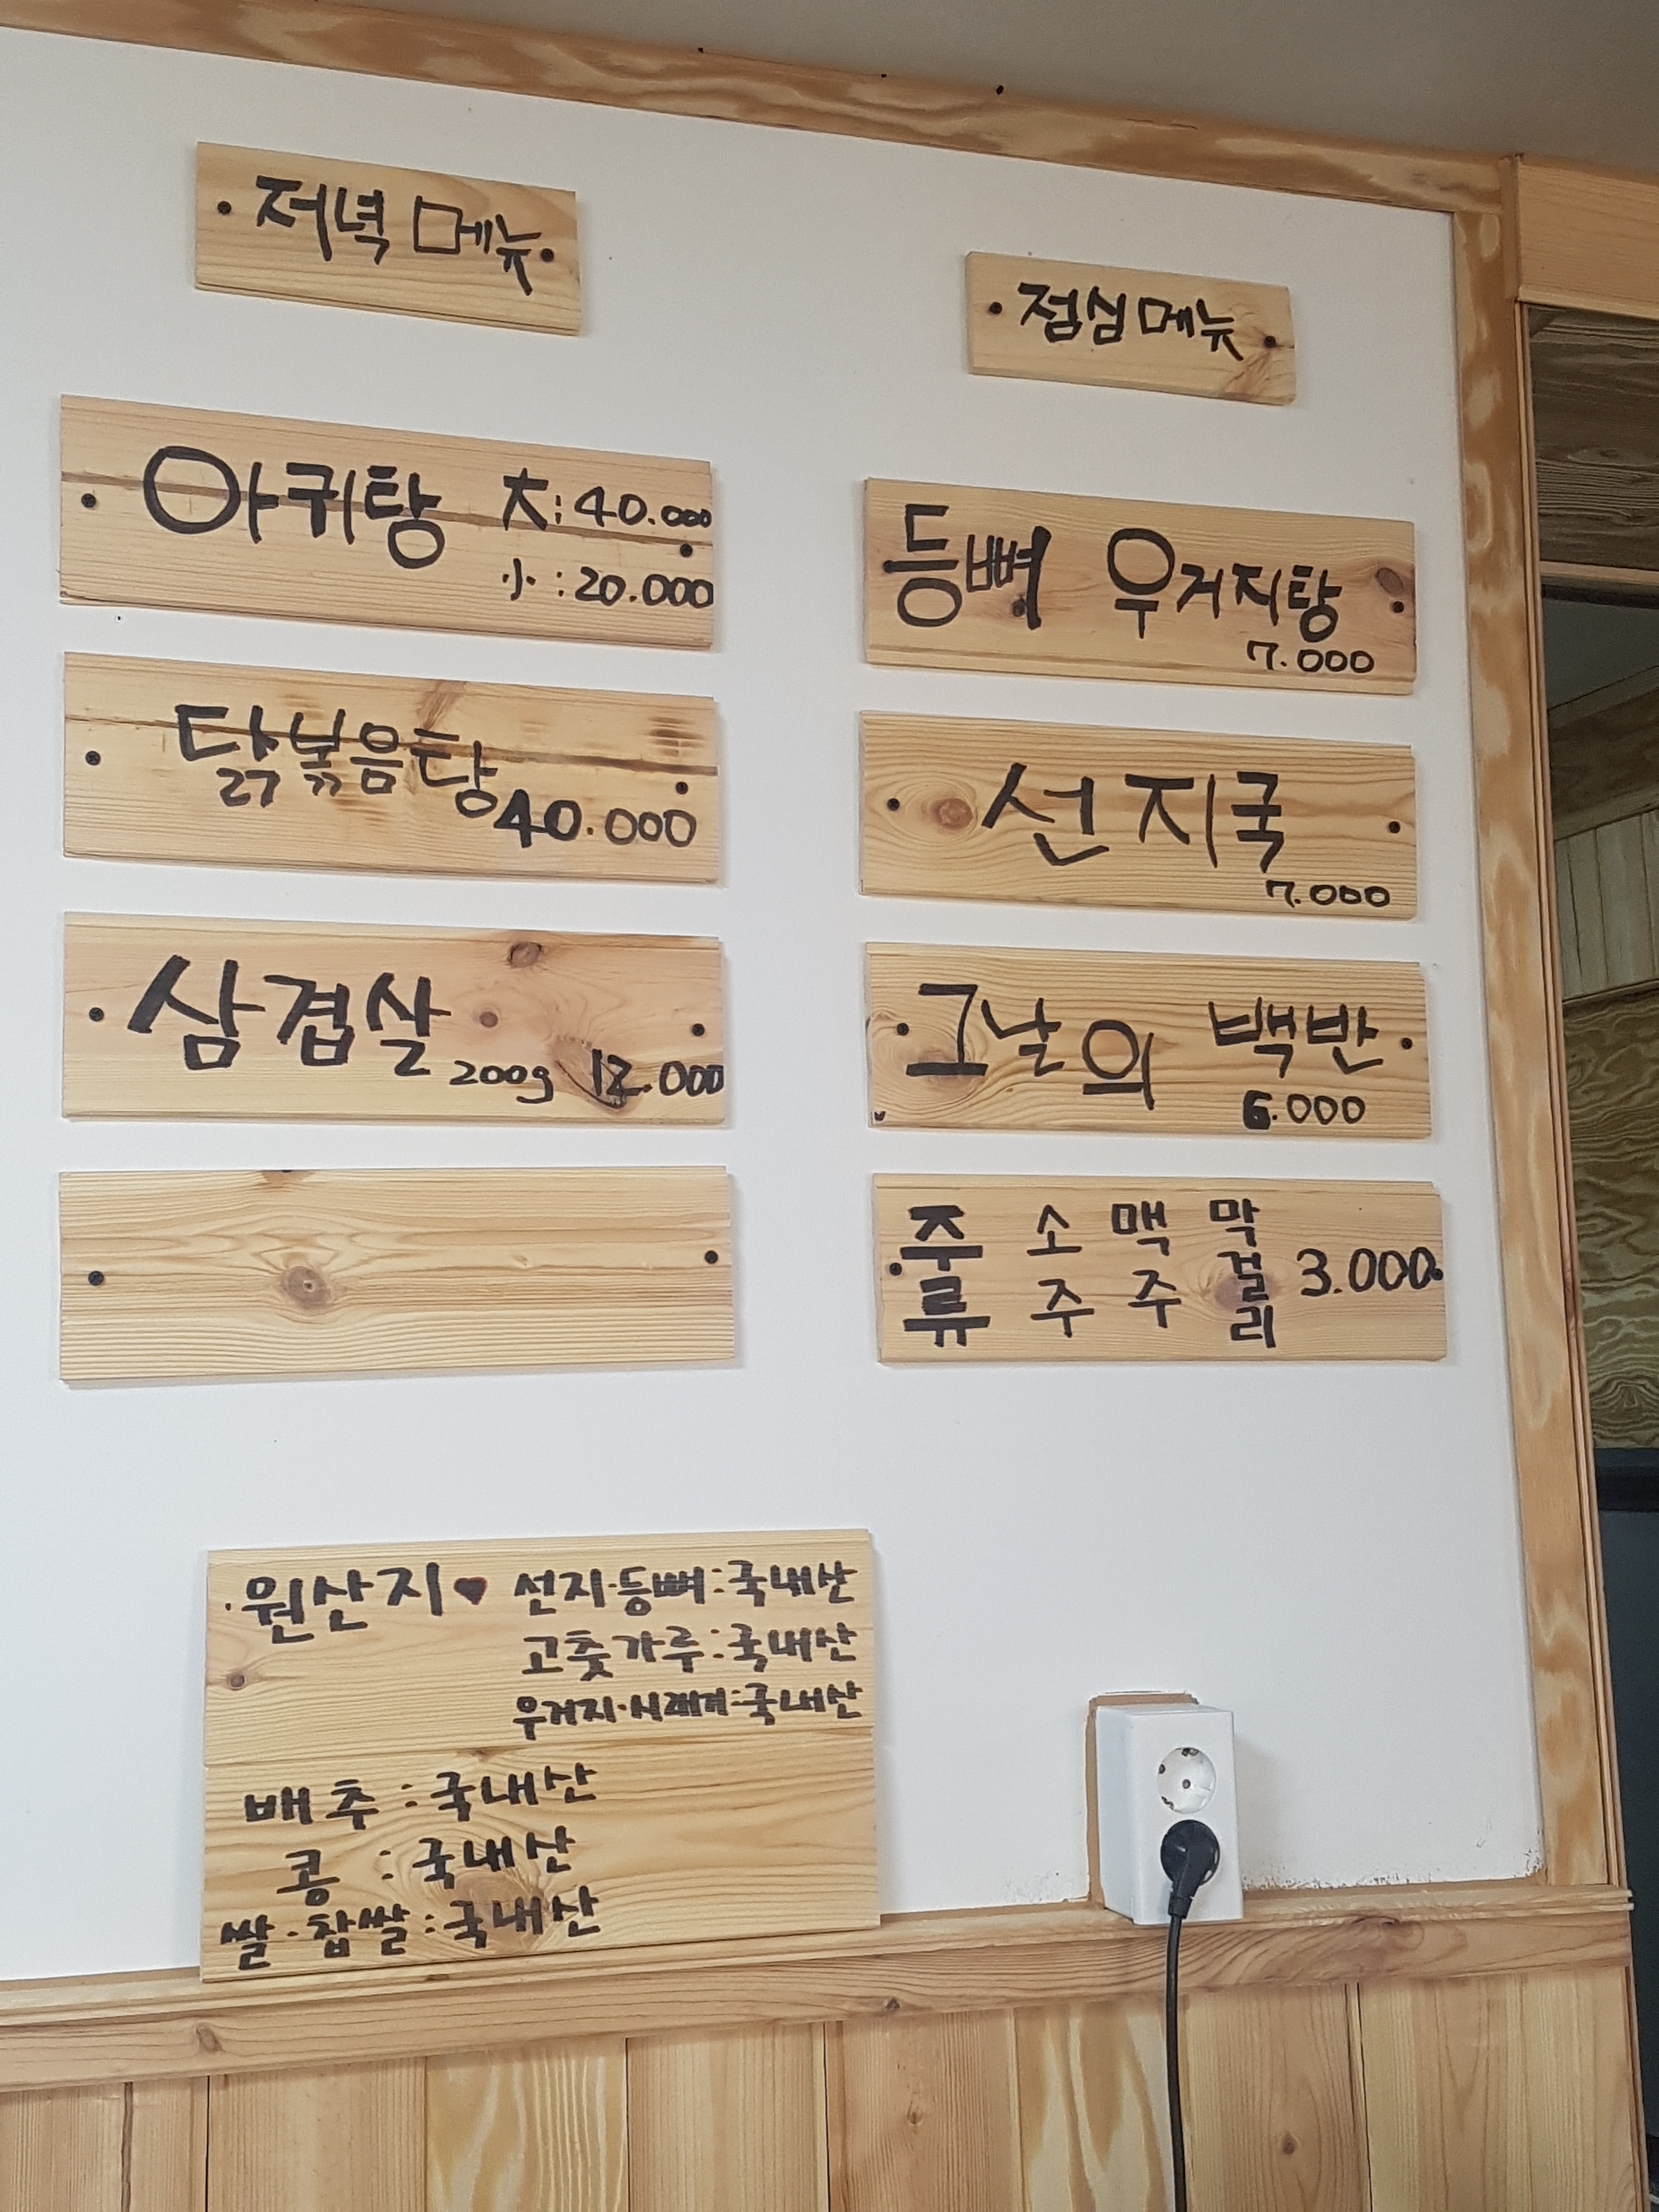 저녁 메뉴
아귀탕 大:40.000
小:20.000
닭볶음탕
40.000
삼겹살
200g 12.000
점심메뉴
등뼈 우거지탕
7.000
선지국
7.000
그날의 백반
6.000
주류 소주 맥주 막걸리 3.000
원산지♥ 선지·등뼈:국내산
고춧가루:국내산
우거지·시래기:국내산
배추:국내산
콩:국내산
쌀·찹쌀:국내산